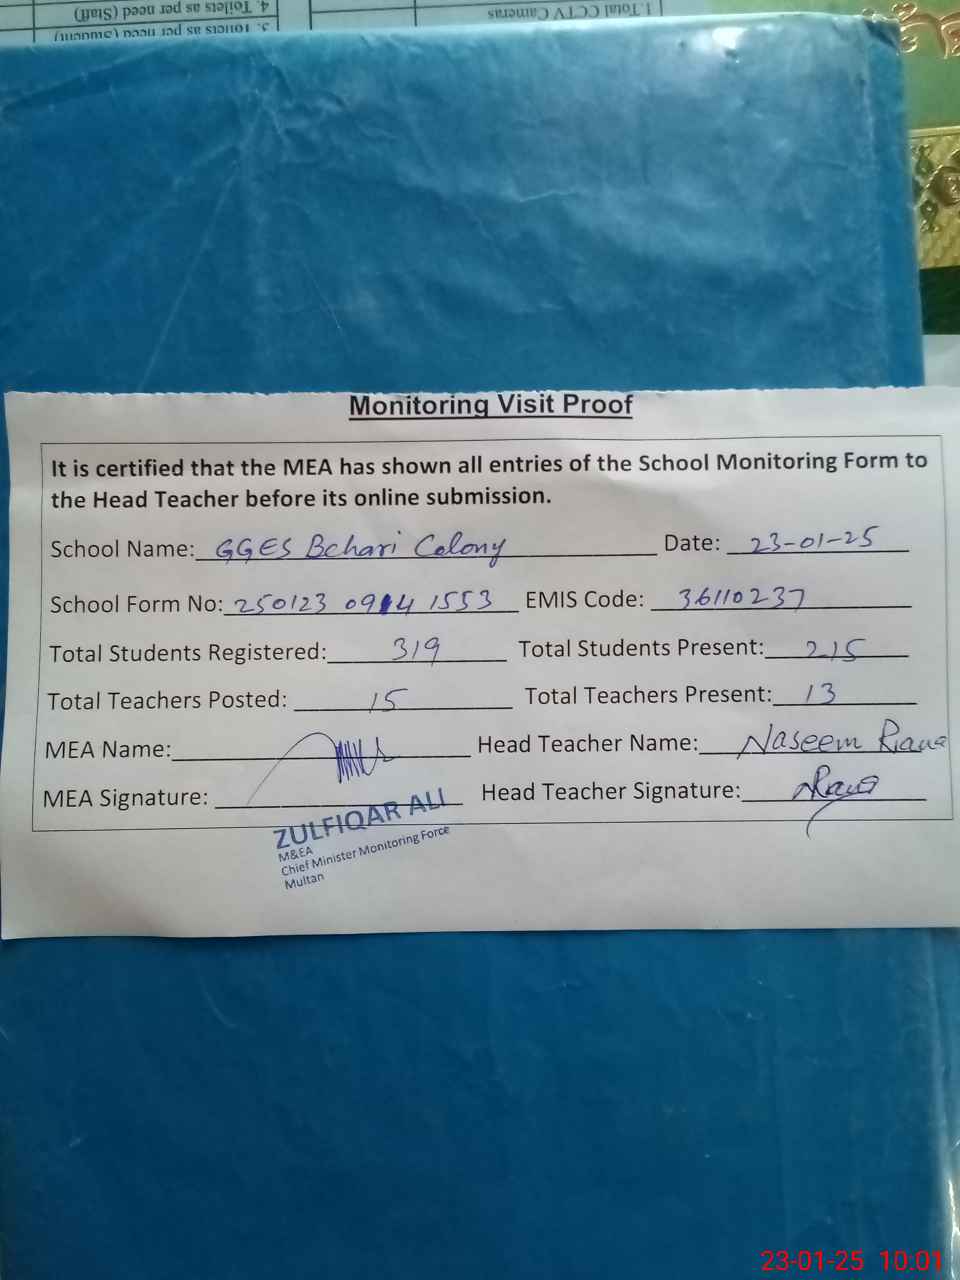 1.Total CCTV Cameras
4. Toilets as per need (Staff)
3. Toilets as per need (Student)
Monitoring Visit Proof
It is certified that the MEA has shown all entries of the School Monitoring Form to
the Head Teacher before its online submission.
School Name: GGES Bchari Colony Date: 23-01-25
School Form No: 250123 0914 1553 EMIS Code: 36110237
Total Students Registered: 319 Total Students Present: 215
Total Teachers Posted: 15 Total Teachers Present: 13
MEA Name: Head Teacher Name: Naseem
MEA Signature: Head Teacher Signature:
ZULFIQAR ALI
M&EA
Chief Minister Monitoring Force
Multan
23-01-25 10:01